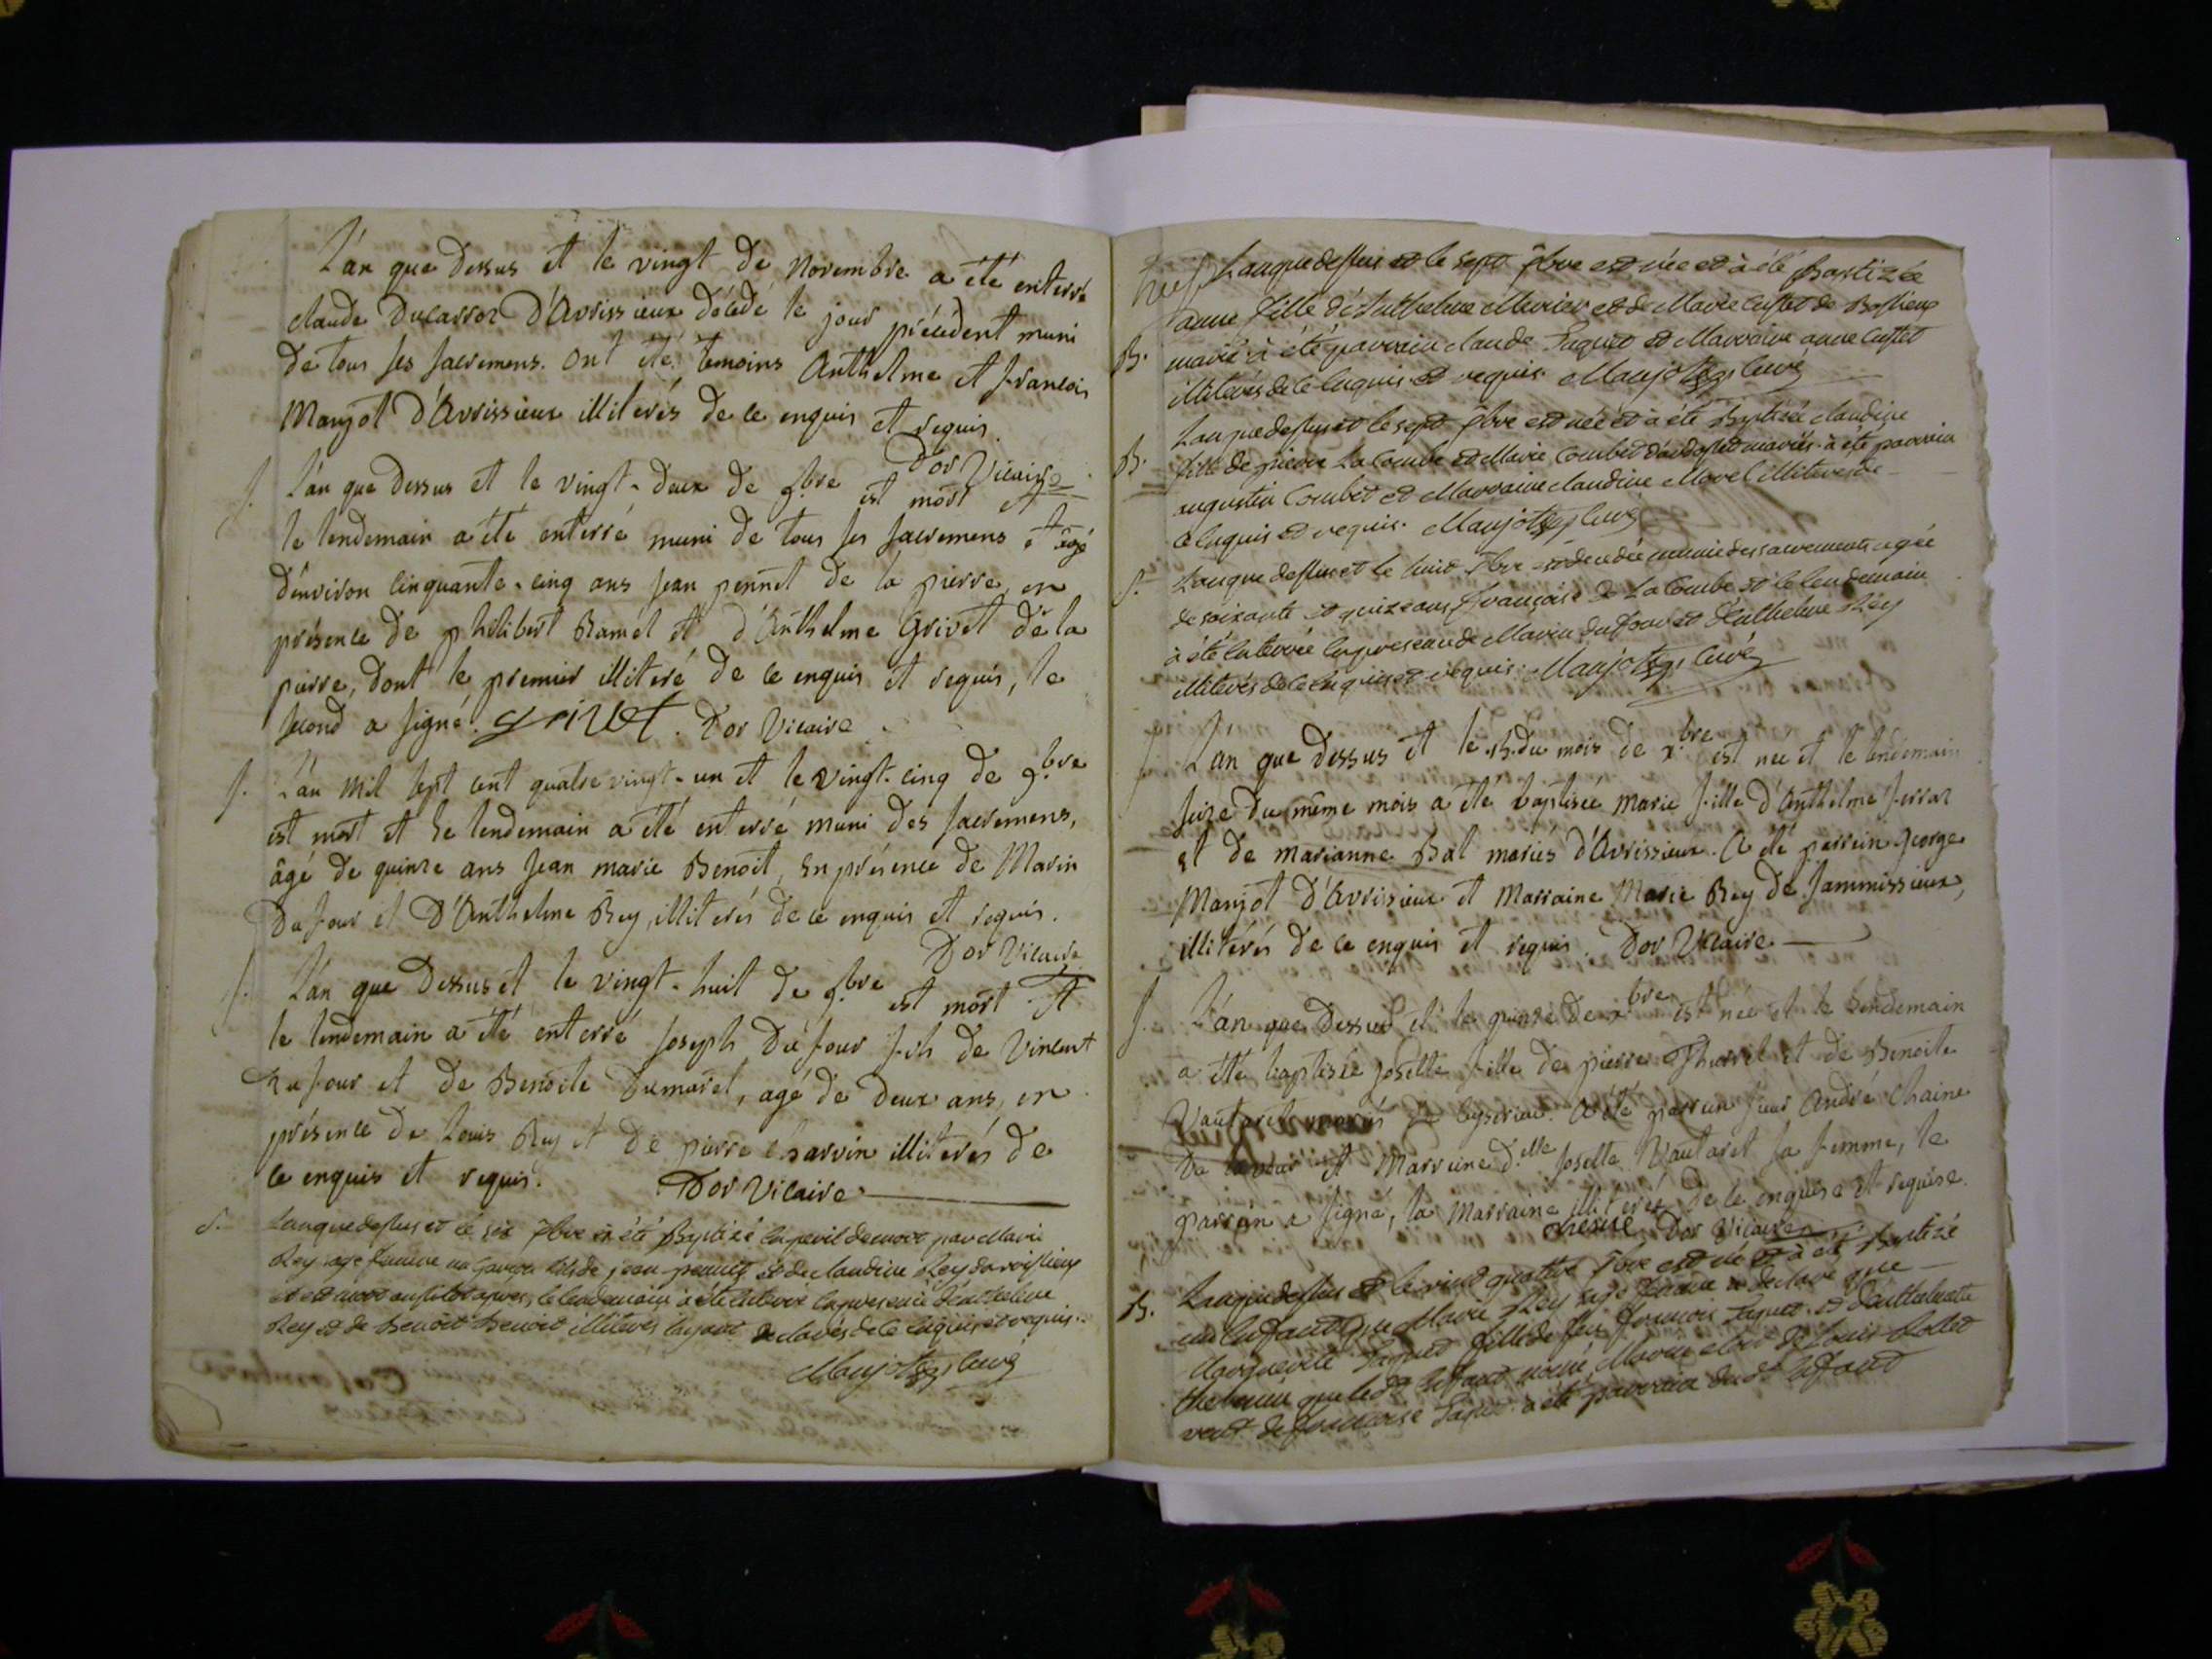 L'an que dessus et le vingt de novembre a été enterré
claude Ducarroz d'Avrissieux décédé le jour précédent muni
de tous ses sacremens. ont été temoins Anthelme et françois
Manjot d'Avrissieux illiterés de ce enquis et requis.
Dor Vicaire
S. L'an que dessus et le vingt-deux de 9.bre est mort et
le lendemain a été enterré muni de tous ses sacremens et âgé
d'environ cinquante-cinq ans jean pennet de la pierre, en
présence de philibert Ramel et d'Anthelme Grivet de la
pierre, dont le premier illiteré de ce enquis et requis, le
second a signé. Grivet. Dor Vicaire
S. L'an mil sept cent quatre vingt-un et le vingt-cinq de 9.bre
est mort et le lendemain a été enterré muni des sacremens,
âgé de quinze ans jean marie Benoit, en présence de Marin
Dufour et D'Anthelme Rey, illiterés de ce enquis et requis.
Dor Vicaire
S. L'an que dessus et le vingt-huit de 9.bre est mort et
le lendemain a été enterré joseph Dufour fils de Vincent
Dufour et de Benoite Dumarel, agé de deux ans, en
présence de Louis Rey et de pierre Charvin illiterés de
ce enquis et requis. Dor Vicaire
S. Lanque dessus et le six xbre a été Baptizé en peril de mort par Marie
Rey sage femme un garçon fils de jean pennet et de claudine Rey davrissieux
et est mort aussitot apres, le lendemain a été enterré en presence d'anthelme
Rey et de Benoit Benoit illiterés layant declarés de ce enquis et requis.
Manjot curé
Lanque dessus et le sept xbre est née et à été Baptizée
anne fille d'Anthelme Mevier et de Marie cusset de
B. mariés à été parrain claude Paquet et Marraine anne Cusset
illiterés de ce enquis et requis. Manjot curé
Lanque dessus et le sept xbre est née et a été Baptisée claudine
B. fille de pierre La Combe et Marie Combet mariés. à été parrain
augustin Combet et Marraine claudine Morel illiterés de
ce enquis et requis. Manjot curé
S. Lanque dessus et le huit xbre est decedée munie des sacrements agée
de soixante et quinze ans françoise de La Combe et le lendemain
à été enterrée en presence de Marin dufour et d'Anthelme Rey
illiterés de ce enquis et requis. Manjot curé
L'an que dessus et le 15. du mois de x.bre est née et le lendemain
seize du même mois a été baptisée marie fille d'Anthelme ferraz
et de marianne Bal mariés d'Avrissieux. A été parrein george
Manjot d'Avrissieux et Marraine Marie Rey de sammissieux,
illiterés de ce enquis et requis. Dor Vicaire
L'an que dessus et le quinze de x.bre est née et le lendemain
a été baptisée josette fille de pierre Thurrel et de Benoite
Vautaret mariés de. A été parrein sieur André Chaine
et Marreine d.elle josette Vautaret sa femme, le
parrein a signé, la Marraine illiterée de ce enquise et requise.
chesne Dor Vicaire
B. Lanque dessus et le vint quattre xbre est né et à été Baptizé
un enfant que Marie Rey sage femme a declaré que
Marguerite Paquet fille de feu françois Paquet et d'anthelmette
que le dt enfant nommé Marin etoit de
de francoise Paquet à été parrain du dt enfant